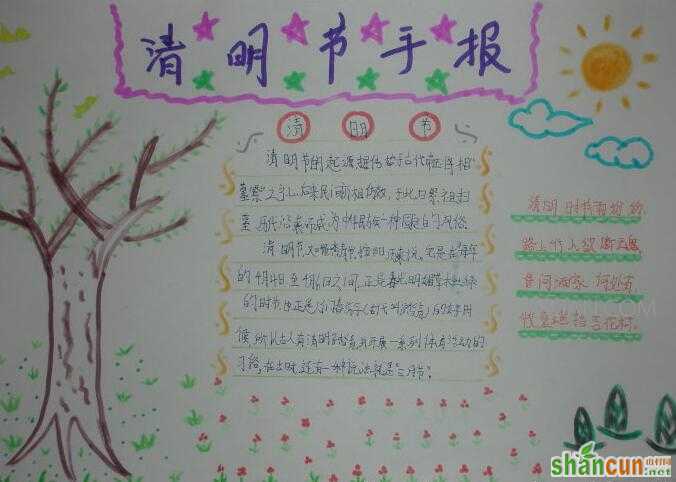 清明节手报
清 明 节
清明节的起源据传始于古代帝王将相
墓祭之礼,后来民间亦相仿效,于此日祭祖扫
墓,历代沿袭而成为中华民族一种固定的风俗。
清明节
的4月4日至4月6日之间,正是春光明媚草木吐绿
的时节,也正是人们春游(古代叫踏青)的好时
候,所以古人有清明踏青,并开展一系列体育活动的
习俗,在古时,还有一种说法就是“三月节”。
清明时节雨纷纷
路上行人欲断魂
借问酒家何处有
牧童遥指杏花村。
shancun
.net